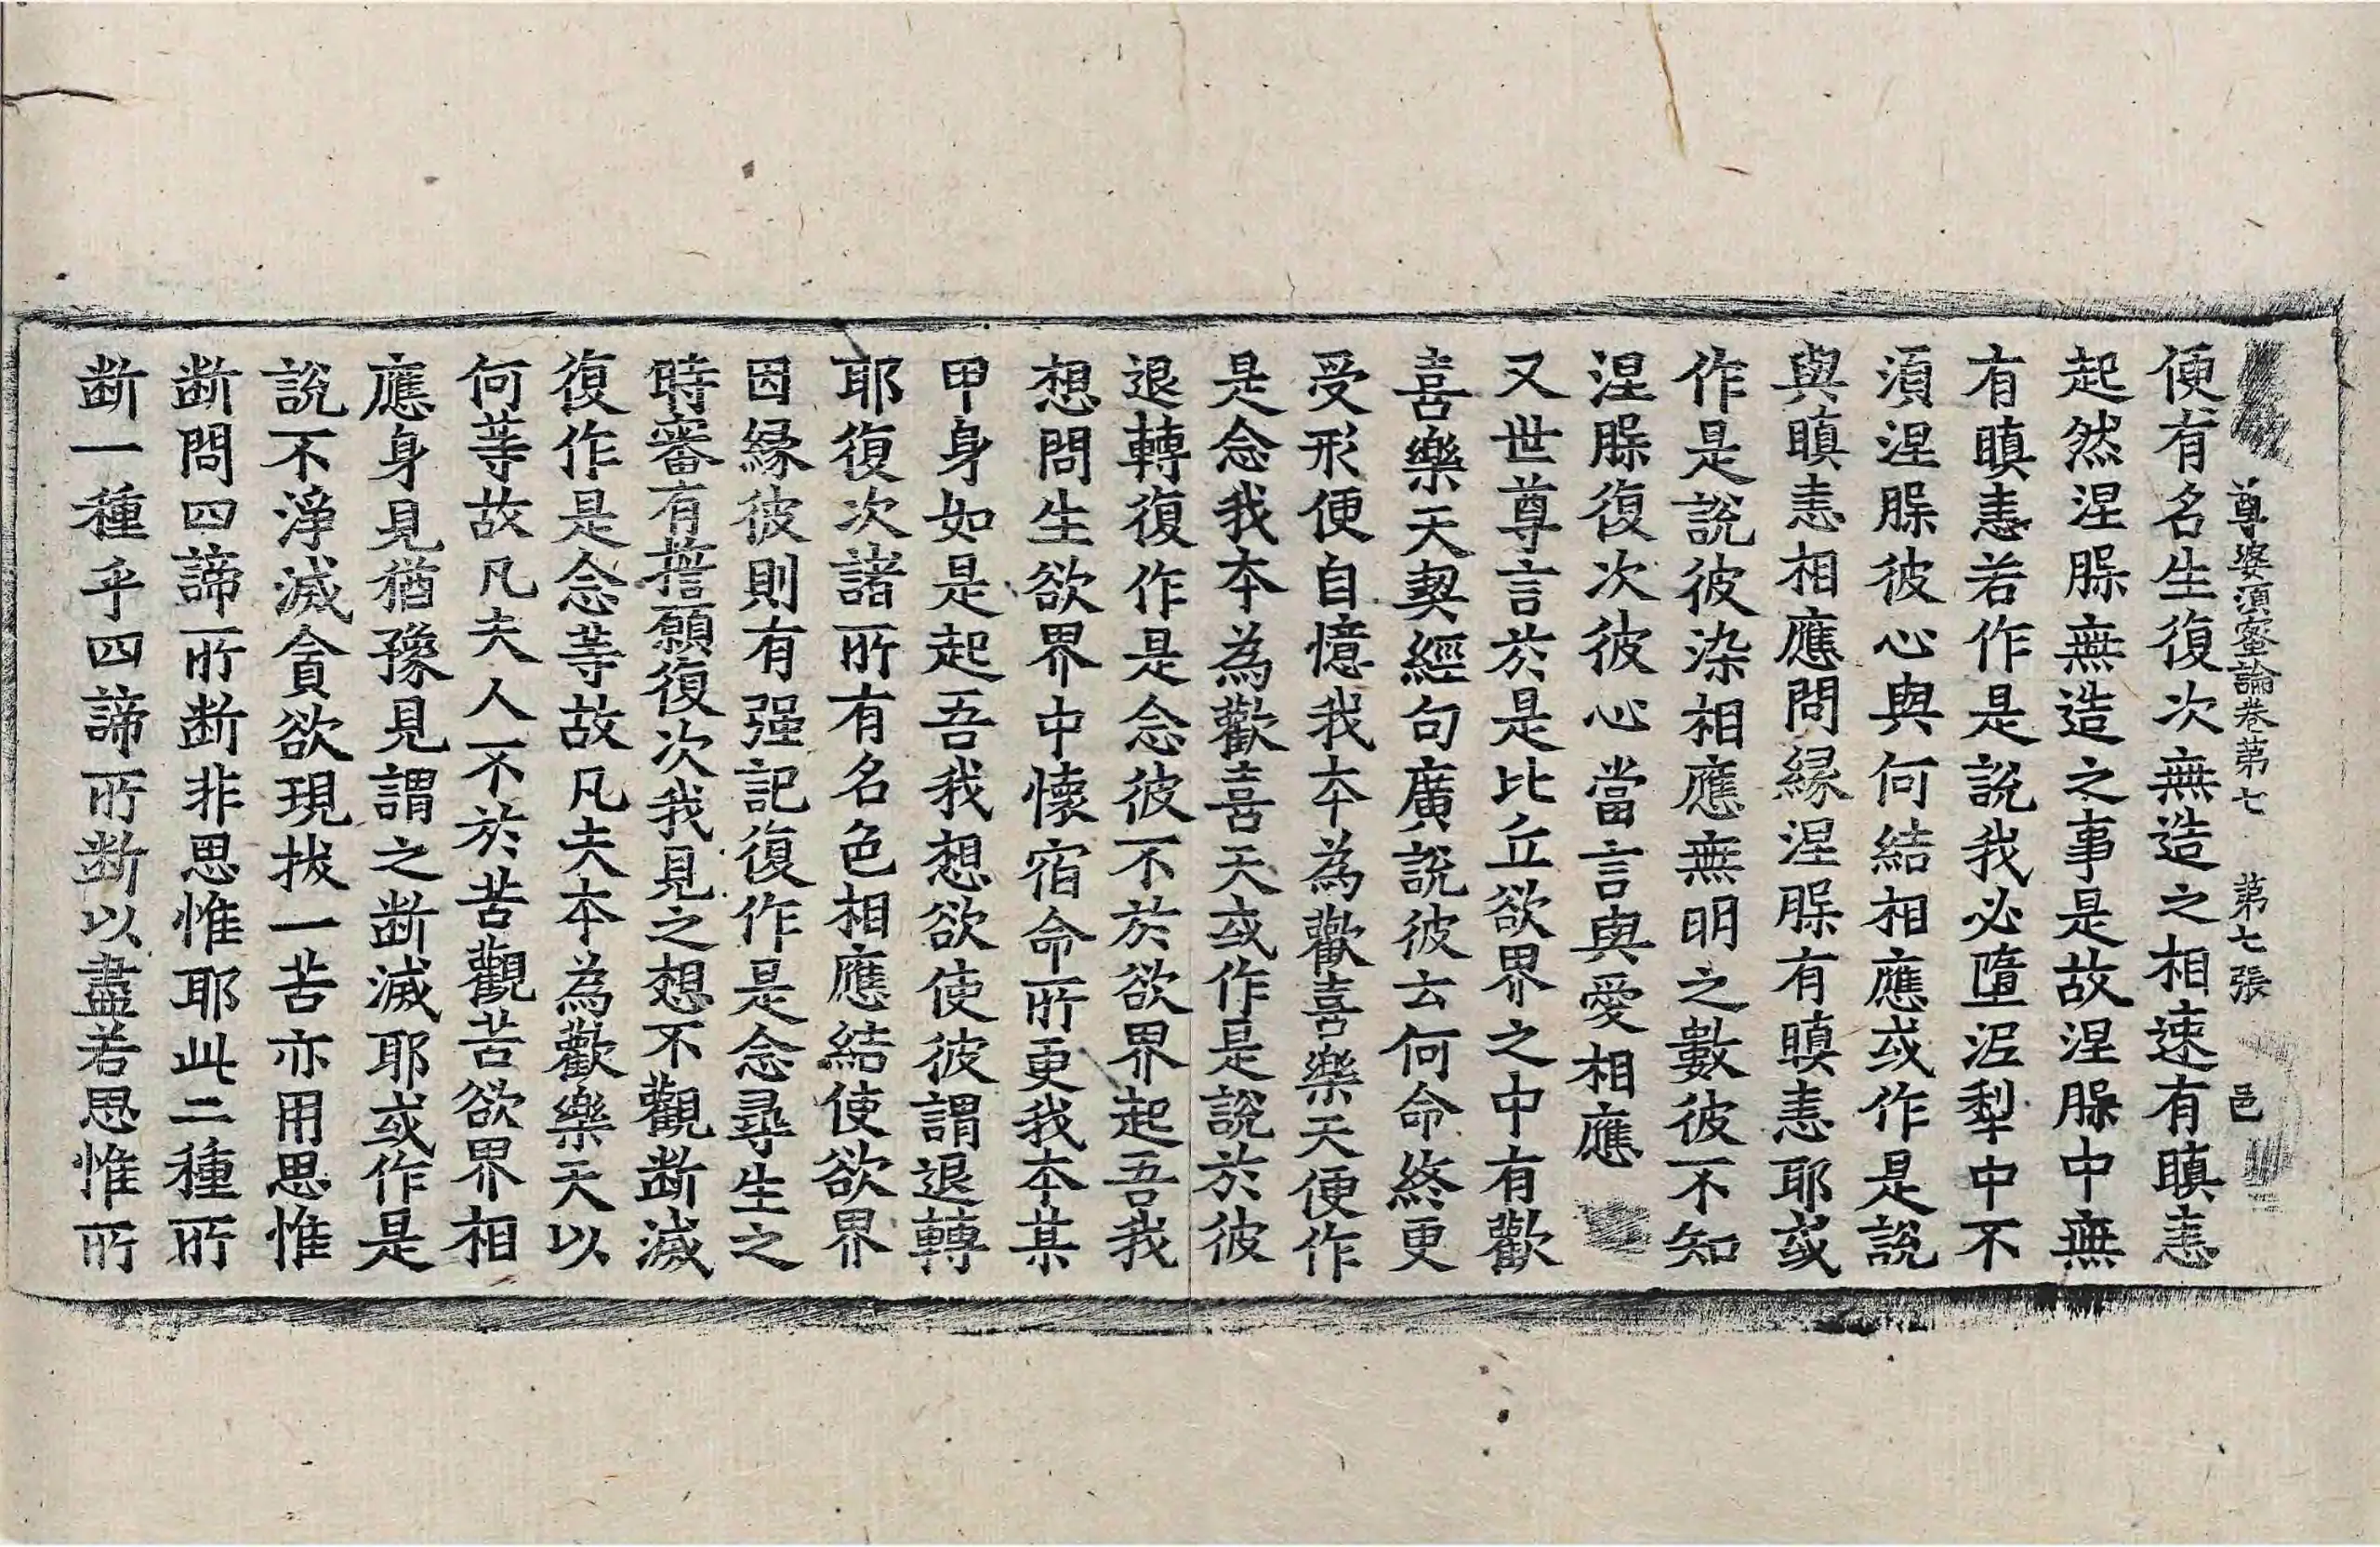 尊婆湏蜜論卷苐七 苐七張 邑
便有名生復次無造之相速有瞋恚
起然涅脲無造之事是故涅脲中無
有瞋恚若作是說我必墮泥犁中不
湏涅脲彼心與何結相應或作是說
與瞋恚相應問緣涅脲有瞋恚耶或
作是說彼染相應無明之數彼不知
涅脲復次彼心當言與愛相應
又世尊言於是比丘欲界之中有歡
喜樂天契經句廣說彼云何命終更
受形便自憶我本為歡喜樂天便作
是念我本為歡喜天或作是說於彼
退轉復作是念彼不於欲界起吾我
想問生欲界中懷宿命所更我本某
甲身如是起吾我想欲使彼謂退轉
耶復次諸所有名色相應結使欲界
因緣彼則有强記復作是念尋生之
時審有誓願復次我見之想不觀断滅
復作是念等故凡夫本為歡樂天以
何等故凡夫人不於苦觀苦欲界相
應身見猶豫見謂之断滅耶或作是
說不淨滅貪欲現拔一苦亦用思惟
断問四諦所断非思惟耶此二種所
断一種乎四諦所断以盡若思惟所